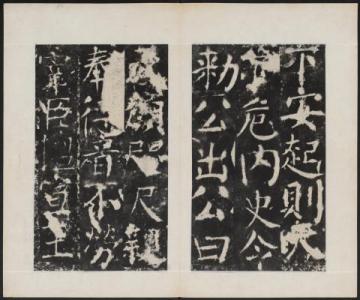 不安起則天
危内史令
勅公出公曰
顔咫尺親
奉德音不勞
宰臣宣王